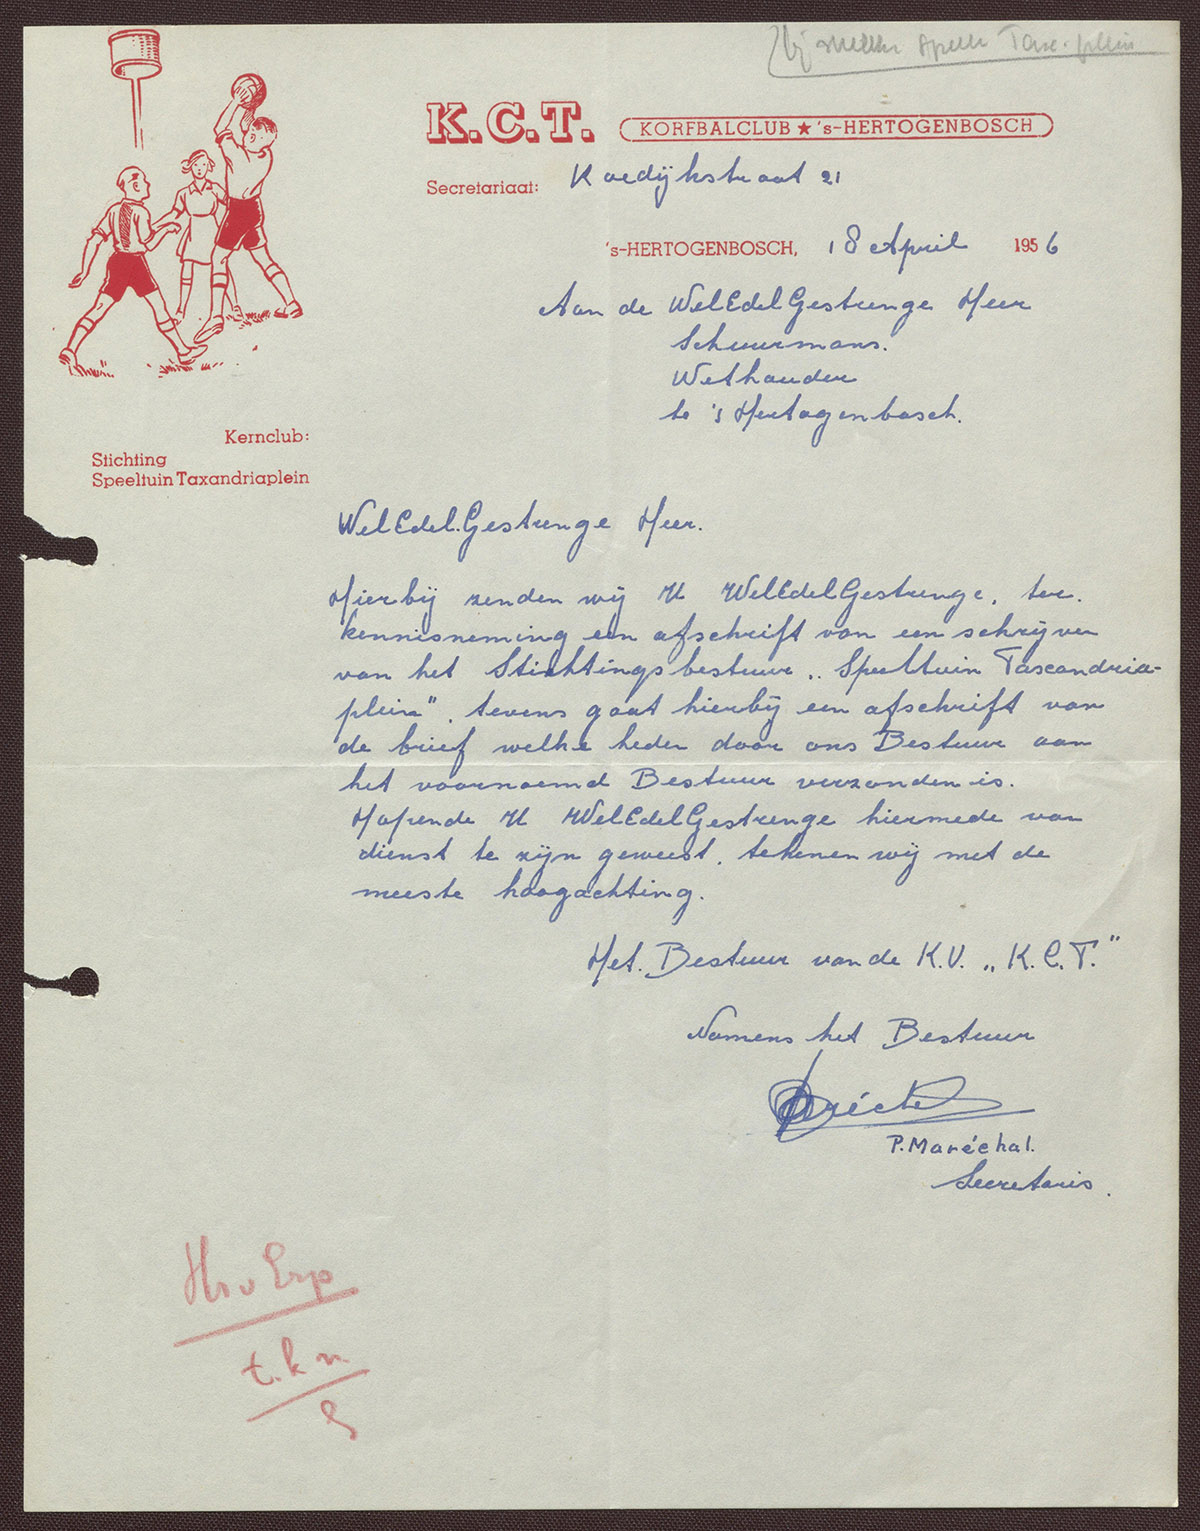 bij
Tax. plein
K.C.T. KORFBALCLUB ★ 's-HERTOGENBOSCH
Secretariaat: Koedijkstraat 21
's-HERTOGENBOSCH, 18 April 1956
Aan de WelEdelGestrenge Heer
Schuurmans.
Wethouder
te 's Hertogenbosch.
Kernclub:
Stichting
Speeltuin Taxandriaplein
WelEdel.Gestrenge Heer.
Hierbij zenden wij U WelEdelGestrenge, ter.
kennisneming een afschrift van een schrijven
van het Stichtingsbestuur „Speeltuin Taxandria-
plein". tevens gaat hierbij een afschrift van
de brief welke heden door ons Bestuur aan
het voornoemd Bestuur verzonden is.
Hopende U WelEdelGestrenge hiermede van
dienst te zijn geweest, tekenen wij met de
meeste hoogachting.
Het. Bestuur van de K.V. „K.C.T."
Namens het Bestuur
P. Maréchal.
Secretaris.
Hr v Erp
t.k.n